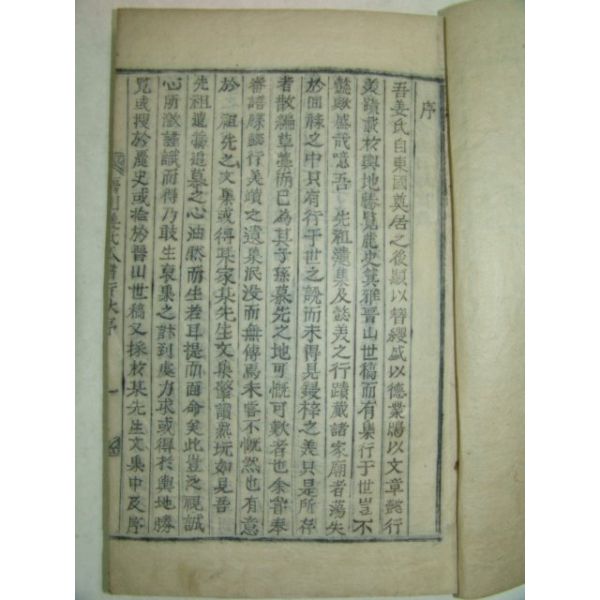 序
吾姜氏自東國奠居之後顯以簪纓盛以德業陽以文章懿行
美蹟載於輿地勝覽麗史箕雅晉山世稿而有集行于世豈不
懿歟盛哉噫吾先祖遺集及懿美之行蹟藏諸家廟者蕩失
於回祿之中只有行于世之說而未得見鋟梓之美只是所存
者散編草藁而已爲其子孫慕先之地可慨可歎者也余嘗奉
審諳懿行美蹟之遺集泯没而無傳焉未嘗不慨然也有意
於祖先之文集或得某家某先生文集擎讀熟玩如見吾
先祖遺 追慕之心油然而生若耳提而面命矣此豈 視誠
心所激 識而得乃敢生裒集之計到處力求或得於輿地勝
覽或搜於麗史或拾於晉山世稿又採於某先生文集中及序
晉州姜氏 行 序 一